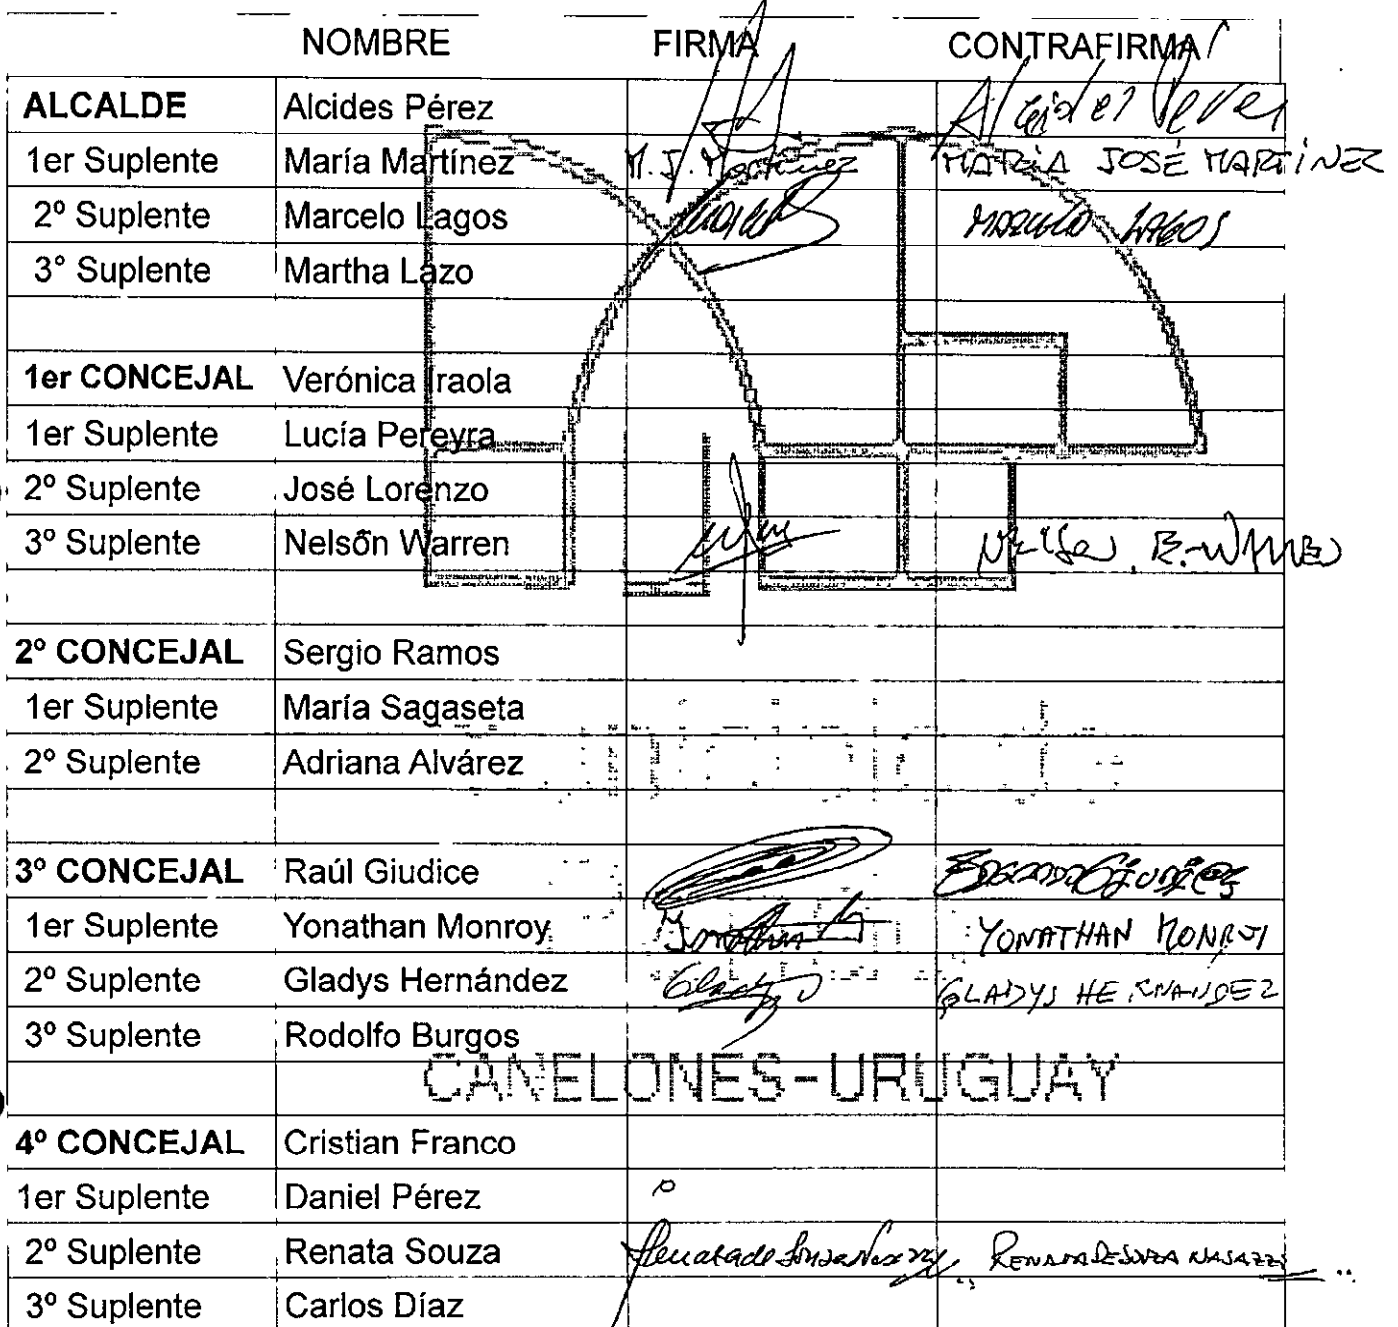 NOMBRE FIRMA CONTRAFIRMA
ALCALDE Alcides Pérez Alcides Perez
1er Suplente María Martínez M. J. Martínez MARÍA JOSÉ MARTÍNEZ
2º Suplente Marcelo Lagos MARCELO LAGOS
3° Suplente Martha Lazo
1er CONCEJAL Verónica Iraola
1er Suplente Lucía Pereyra
2º Suplente José Lorenzo
3º Suplente Nelson Warren
2º CONCEJAL Sergio Ramos
1er Suplente María Sagaseta
2º Suplente Adriana Alvárez
3º CONCEJAL Raúl Giudice
1er Suplente Yonathan Monroy Jonathan YONATHAN MONROY
2º Suplente Gladys Hernández Gladys GLADYS HERNANDEZ
3º Suplente Rodolfo Burgos
CANELONES-URUGUAY
4º CONCEJAL Cristian Franco
1er Suplente Daniel Pérez
2º Suplente Renata Souza Renata de Souza Nasazzi RENATA DE SOUZA NASAZZI
3º Suplente Carlos Díaz